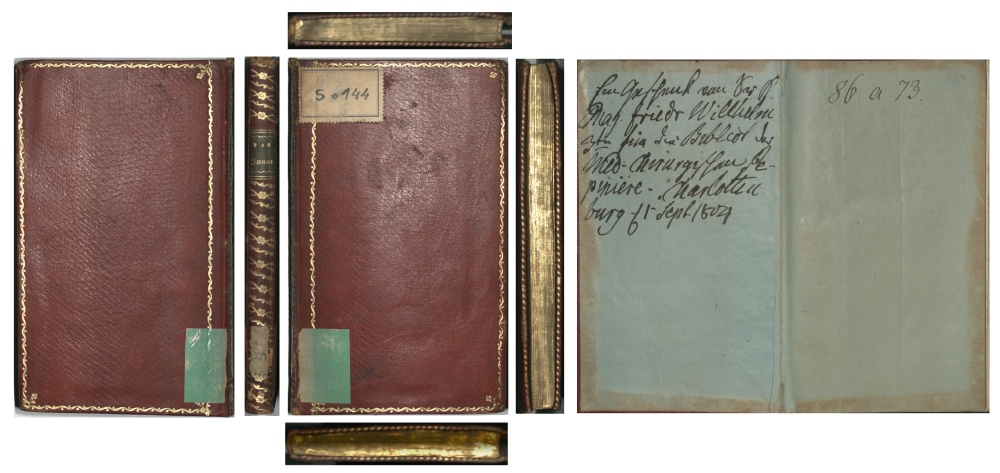 S 144
Ein Geschenk von Sr. K.
Maj. Friedr Wilhelm
für die Biblioth der
Med-Chirurgischen Pe-
piniere. Charlotten
burg Sept. 1804
86. a 73.